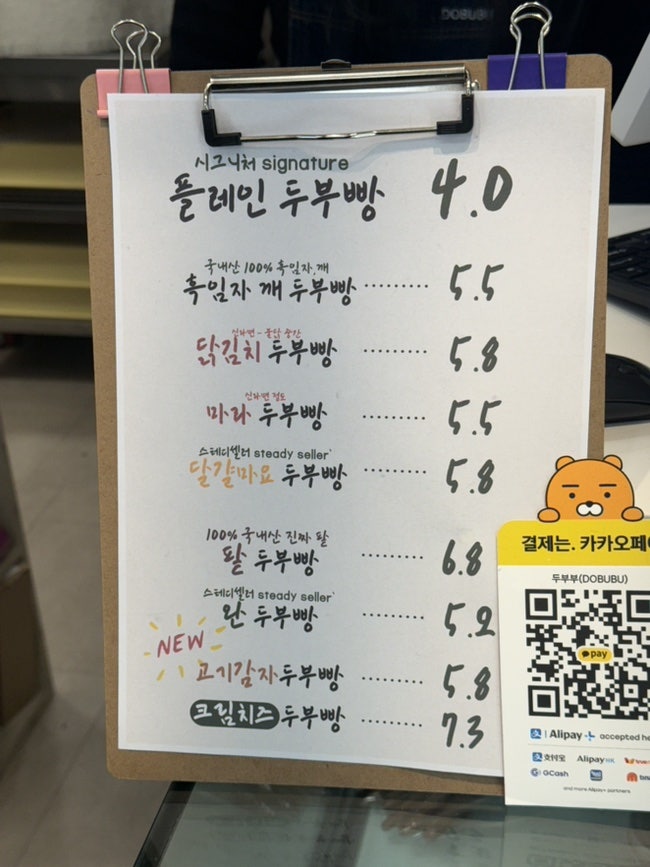 DOBUBU
시그니처 signature
플레인 두부빵 4.0
국내산 100% 흑임자.깨
흑임자 깨 두부빵 ········· 5.5
신라면-불닭 중간
닭김치 두부빵 ········· 5.8
신라면 정도
마라 두부빵 ········· 5.5
스테디셀러 steady seller
달걀마요 두부빵 ········· 5.8
100% 국내산 진짜 팥
팥 두부빵 ········· 6.8
스테디셀러 steady seller
완 두부빵 ········· 5.2
NEW
고기감자두부빵 ········· 5.8
크림치즈 두부빵 ········· 7.3
결제는. 카카오페이
두부부(DOBUBU)
pay
Alipay+ accepted he
支付宝 AlipayHK
GCash
and more Alipay+ partners